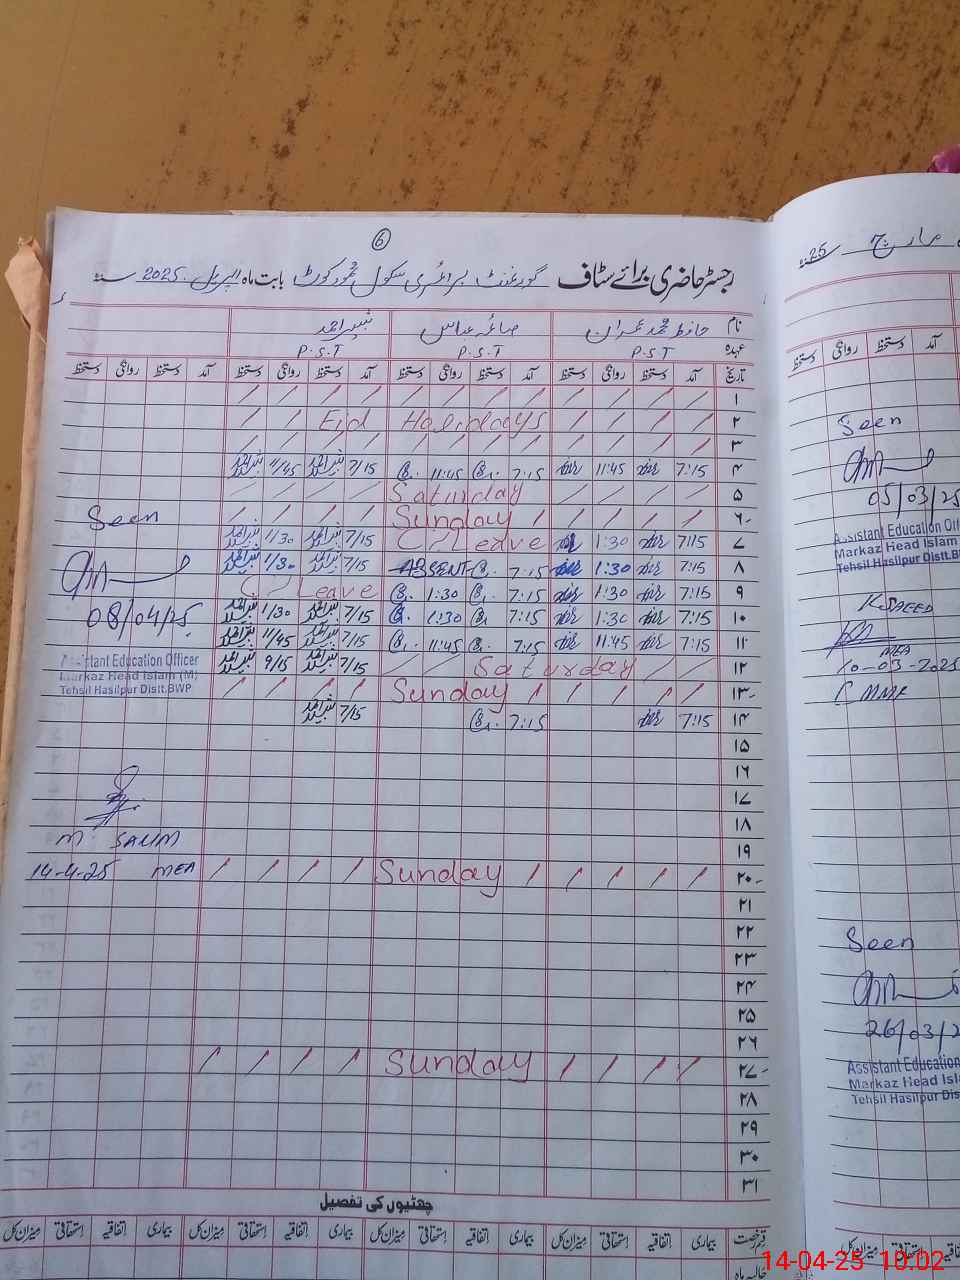 6
رجسٹر حاضری برائے سٹاف گورنمنٹ پرائمری سکول محمود کوٹ بابت ماہ اپریل 2025 سنہ
نام حافظ محمد عمران صائمہ عباس شبیر احمد
عہدہ P.S.T P.S.T P.S.T
تاریخ آمد دستخط روانگی دستخط آمد دستخط روانگی دستخط آمد دستخط روانگی دستخط آمد دستخط روانگی دستخط
۱
۲ Eid Holidays
۳
۴ 7:15 11:45 7:15 11:45 7/15 11/45
۵ Saturday
۶ Sunday
۷ 7:15 1:30 C/Leave 7/15 1/30
۸ 7:15 1:30 7:15 ABSENT 7/15 1/30
۹ 7:15 1:30 7:15 1:30 C/Leave
۱۰ 7:15 1:30 7:15 1:30 7/15 1/30
۱۱ 7:15 11:45 7:15 11:45 7/15 11/45
۱۲ Saturday 7/15 9/15
۱۳ Sunday
۱۴ 7:15 7:15 7/15
۱۵
۱۶
۱۷
۱۸
۱۹
۲۰ Sunday
۲۱
۲۲
۲۳
۲۴
۲۵
۲۶
۲۷ Sunday
۲۸
۲۹
۳۰
۳۱
Seen
08/04/25
Assistant Education Officer
Markaz Head Islam (M)
Tehsil Hasilpur Distt.BWP
M SALIM
14-4-25 MEA
چھٹیوں کی تفصیل
قسم رخصت بیماری اتفاقیہ استحقاقی میزان کل بیماری اتفاقیہ استحقاقی میزان کل بیماری اتفاقیہ استحقاقی میزان کل بیماری اتفاقیہ استحقاقی میزان کل
حالیہ ماہ
مارچ 25
آمد دستخط روانگی دستخط
Seen
05/03/25
Assistant Education Offi
Markaz Head Islam
Tehsil Hasilpur Distt.B
K.SAEED
MEA
10-03-2025
Seen
26/03/2
Assistant Education
Markaz Head Isl
Tehsil Hasilpur Dis
میزان کل استحقاقی
14-04-25 10.02